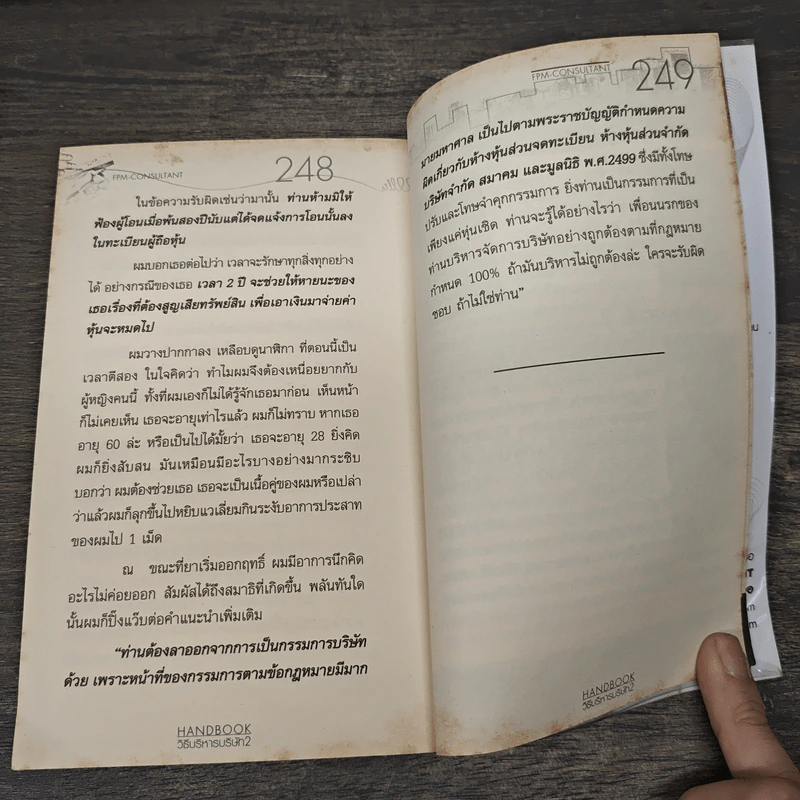 FPM-CONSULTANT
248
ในข้อความรับผิดเช่นว่ามานั้น ท่านห้ามมิให้
ฟ้องผู้โอนเมื่อพ้นสองปีนับแต่ได้จดแจ้งการโอนนั้นลง
ในทะเบียนผู้ถือหุ้น
ผมบอกเธอต่อไปว่า เวลาจะรักษาทุกสิ่งทุกอย่าง
ได้ อย่างกรณีของเธอ เวลา 2 ปี จะช่วยให้หายนะของ
เธอเรื่องที่ต้องสูญเสียทรัพย์สิน เพื่อเอาเงินมาจ่ายค่า
หุ้นจะหมดไป
ผมวางปากกาลง เหลือบดูนาฬิกา ที่ตอนนี้เป็น
เวลาตีสอง ในใจคิดว่า ทำไมผมจึงต้องเหนื่อยยากกับ
ผู้หญิงคนนี้ ทั้งที่ผมเองก็ไม่ได้รู้จักเธอมาก่อน เห็นหน้า
ก็ไม่เคยเห็น เธอจะอายุเท่าไรแล้ว ผมก็ไม่ทราบ หากเธอ
อายุ 60 ล่ะ หรือเป็นไปได้มั้ยว่า เธอจะอายุ 28 ยิ่งคิด
ผมก็ยิ่งสับสน มันเหมือนมีอะไรบางอย่างมากระซิบ
บอกว่า ผมต้องช่วยเธอ เธอจะเป็นเนื้อคู่ของผมหรือเปล่า
ว่าแล้วผมก็ลุกขึ้นไปหยิบแวเลี่ยมกินระงับอาการประสาท
ของผมไป 1 เม็ด
ณ ขณะที่ยาเริ่มออกฤทธิ์ ผมมีอาการนึกคิด
อะไรไม่ค่อยออก สัมผัสได้ถึงสมาธิที่เกิดขึ้น พลันทันใด
นั้นผมก็ปิ๊งแว๊บต่อคำแนะนำเพิ่มเติม
“ท่านต้องลาออกจากการเป็นกรรมการบริษัท
ด้วย เพราะหน้าที่ของกรรมการตามข้อกฎหมายมีมาก
HANDBOOK
วิธีบริหารบริษัท2
FPM-CONSULTANT
249
นายมหาศาล เป็นไปตามพระราชบัญญัติกำหนดความ
ผิดเกี่ยวกับห้างหุ้นส่วนจดทะเบียน ห้างหุ้นส่วนจำกัด
บริษัทจำกัด สมาคม และมูลนิธิ พ.ศ.2499 ซึ่งมีทั้งโทษ
ปรับและโทษจำคุกกรรมการ ยิ่งท่านเป็นกรรมการที่เป็น
เพียงแค่หุ่นเชิด ท่านจะรู้ได้อย่างไรว่า เพื่อนนรกของ
ท่านบริหารจัดการบริษัทอย่างถูกต้องตามที่กฎหมาย
กำหนด 100% ถ้ามันบริหารไม่ถูกต้องล่ะ ใครจะรับผิด
ชอบ ถ้าไม่ใช่ท่าน”
HANDBOOK
วิธีบริหารบริษัท2